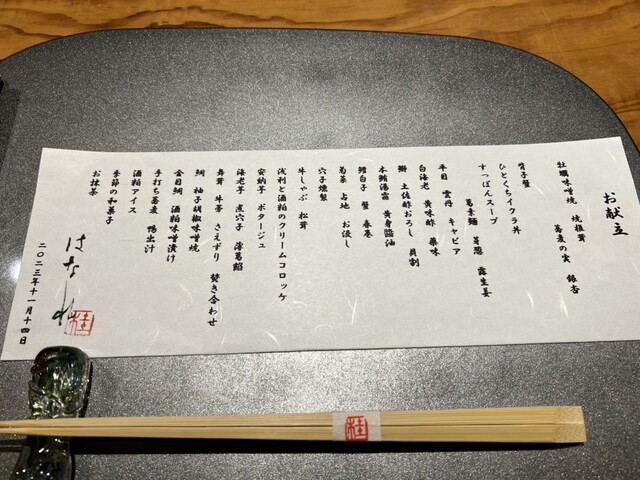 お献立
牡蠣味噌焼　焼椎茸
蕎麦の実　銀杏
香箱蟹
ひとくちイクラ丼
すっぽんスープ
葛素麺　芽葱　露生姜
平目　雲丹　キャビア
白海老　黄味酢　藥味
鰤　土佐酢おろし　貝割
本鮪湯霜　黄身醤油
鱈白子　蟹　春巻
菊菜　占地　お浸し
穴子燻製
牛しゃぶ　松茸
浅利と酒粕のクリームコロッケ
安納芋　ポタージュ
海老芋　煮穴子　薄葛餡
舞茸　牛蒡　さえずり　焚き合わせ
鯛　柚子胡椒味噌焼
金目鯛　酒粕味噌漬け
手打ち蕎麦　鴨出汁
酒粕アイス
季節の和菓子
お抹茶
はなれ
桂
二〇二三年十一月十四日
桂